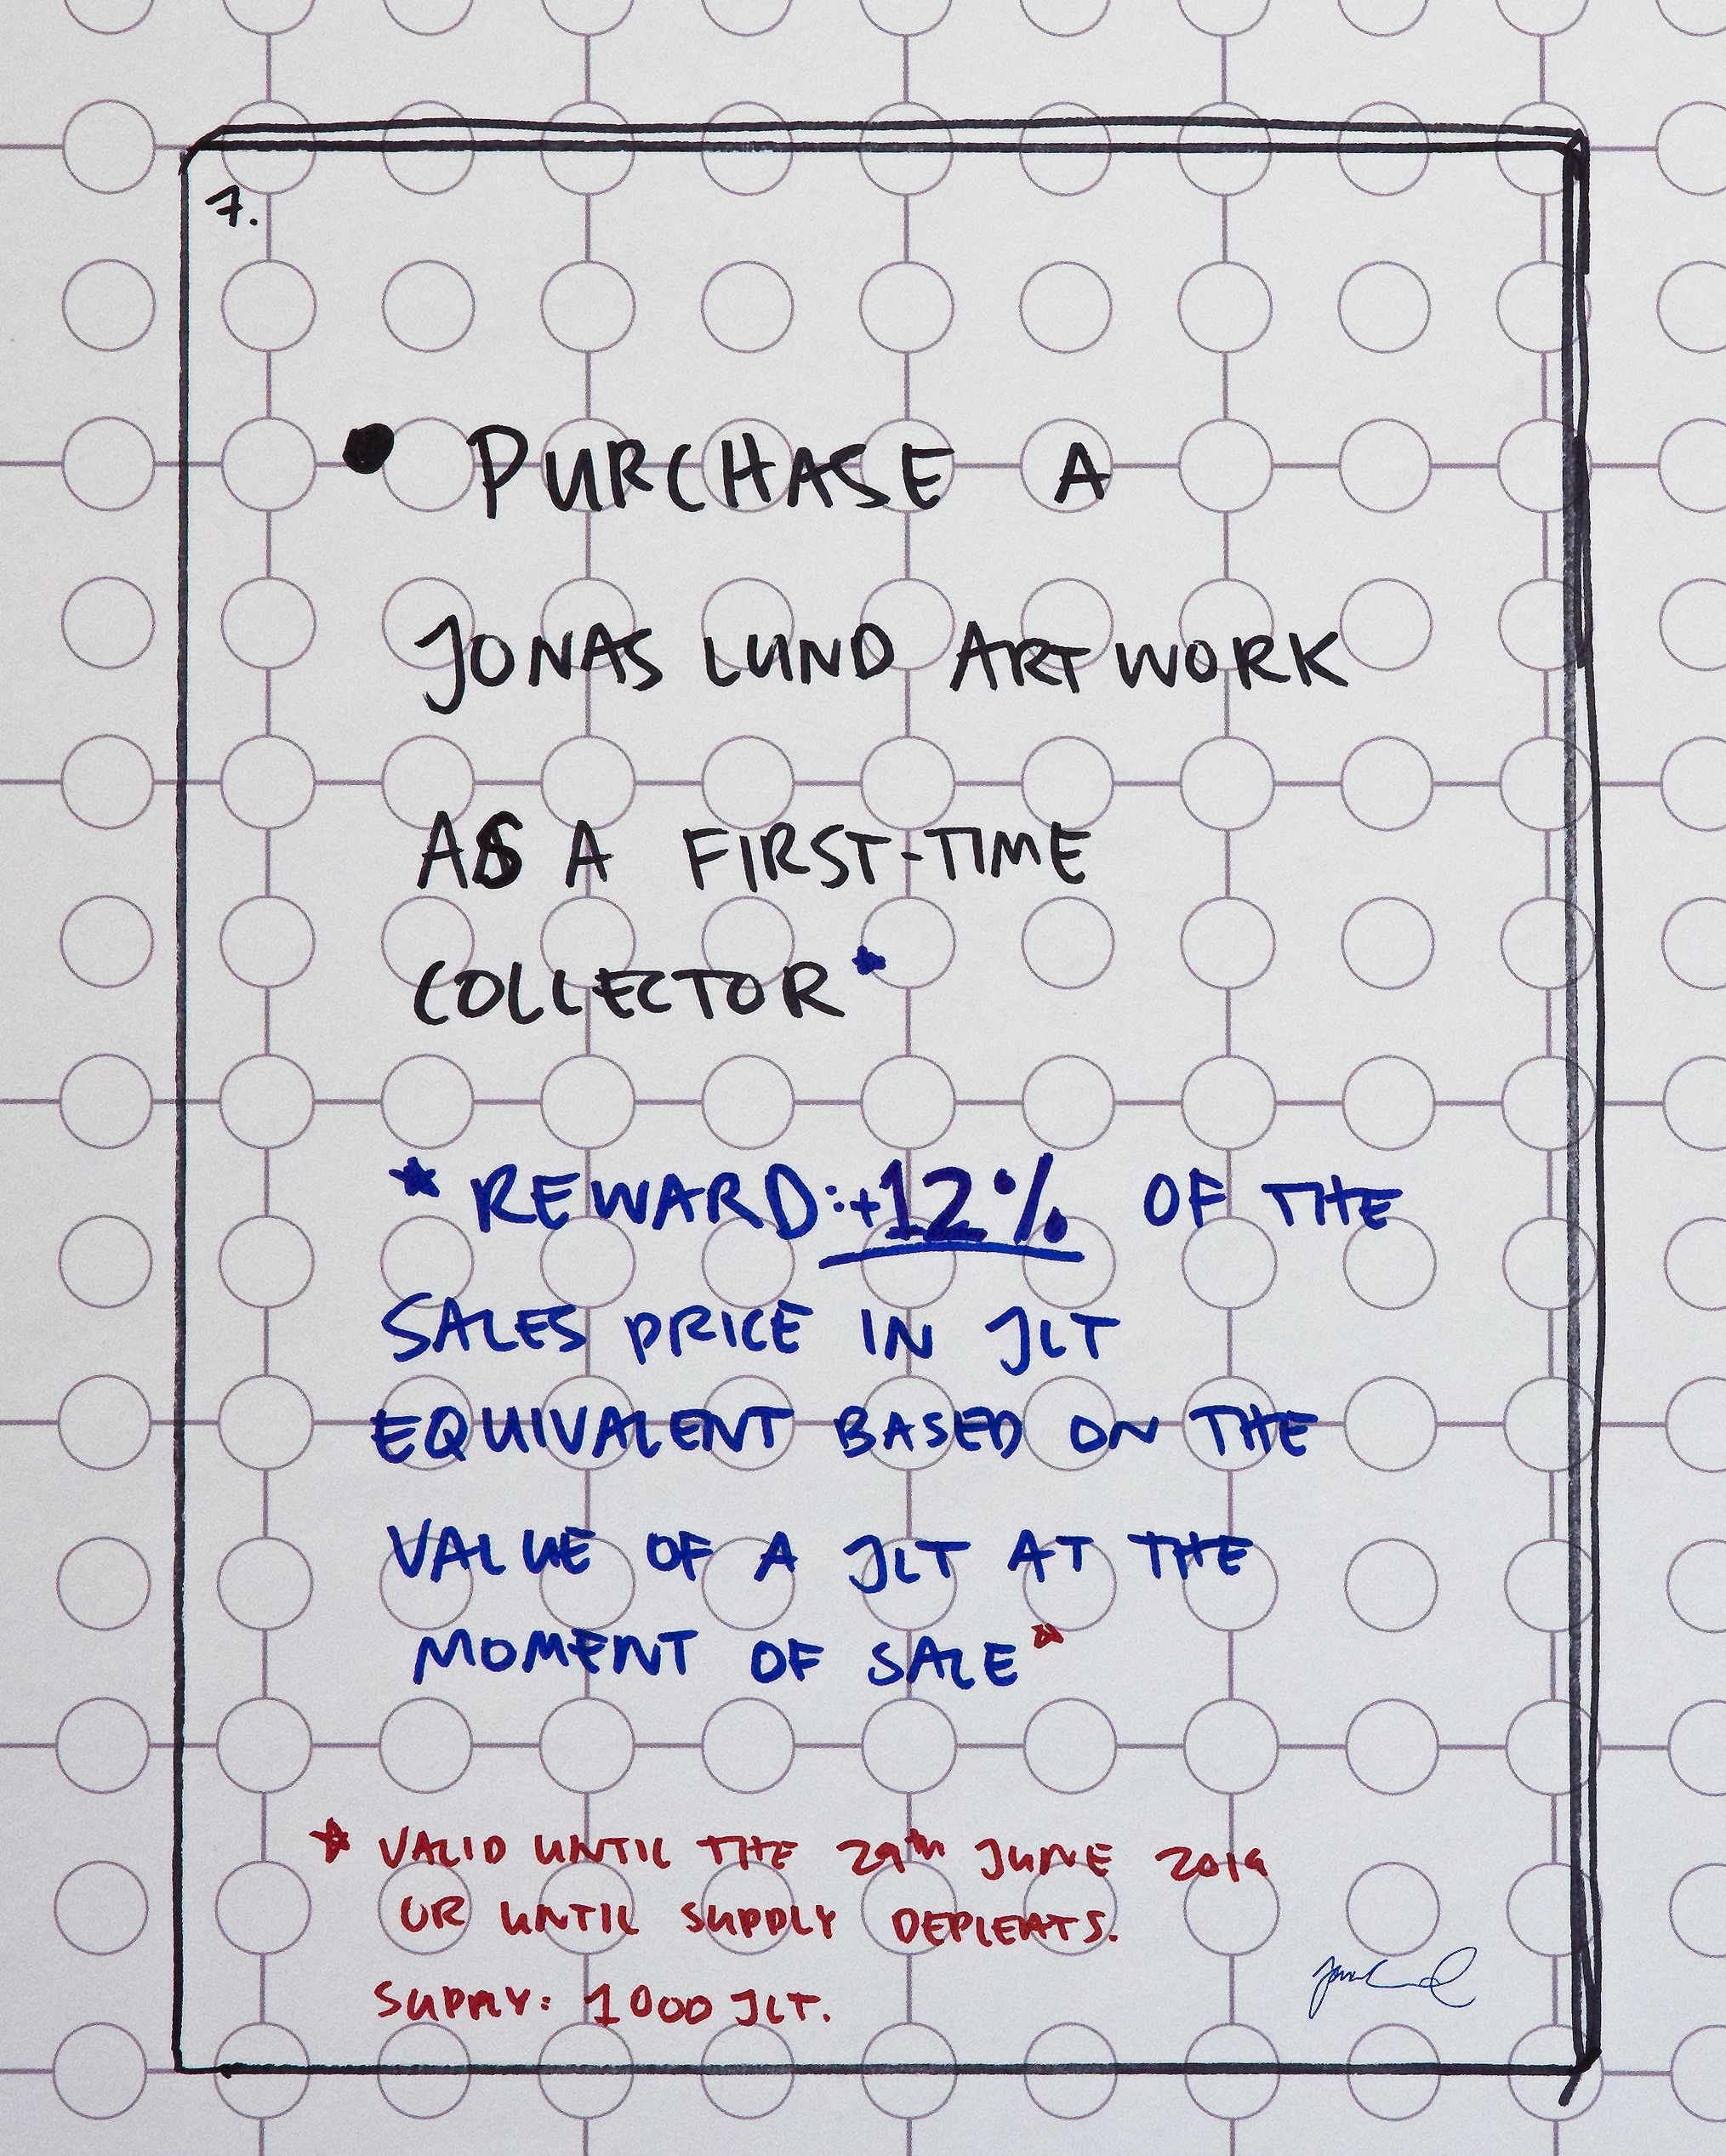 7.
• PURCHASE A
JONAS LUND ARTWORK
AS A FIRST-TIME
COLLECTOR*
* REWARD:+12% OF THE
SALES PRICE IN JLT
EQUIVALENT BASED ON THE
VALUE OF A JLT AT THE
MOMENT OF SALE*
* VALID UNTIL THE 29th JUNE 2019
OR UNTIL SUPPLY DEPLEATS.
SUPPLY: 1000 JLT.